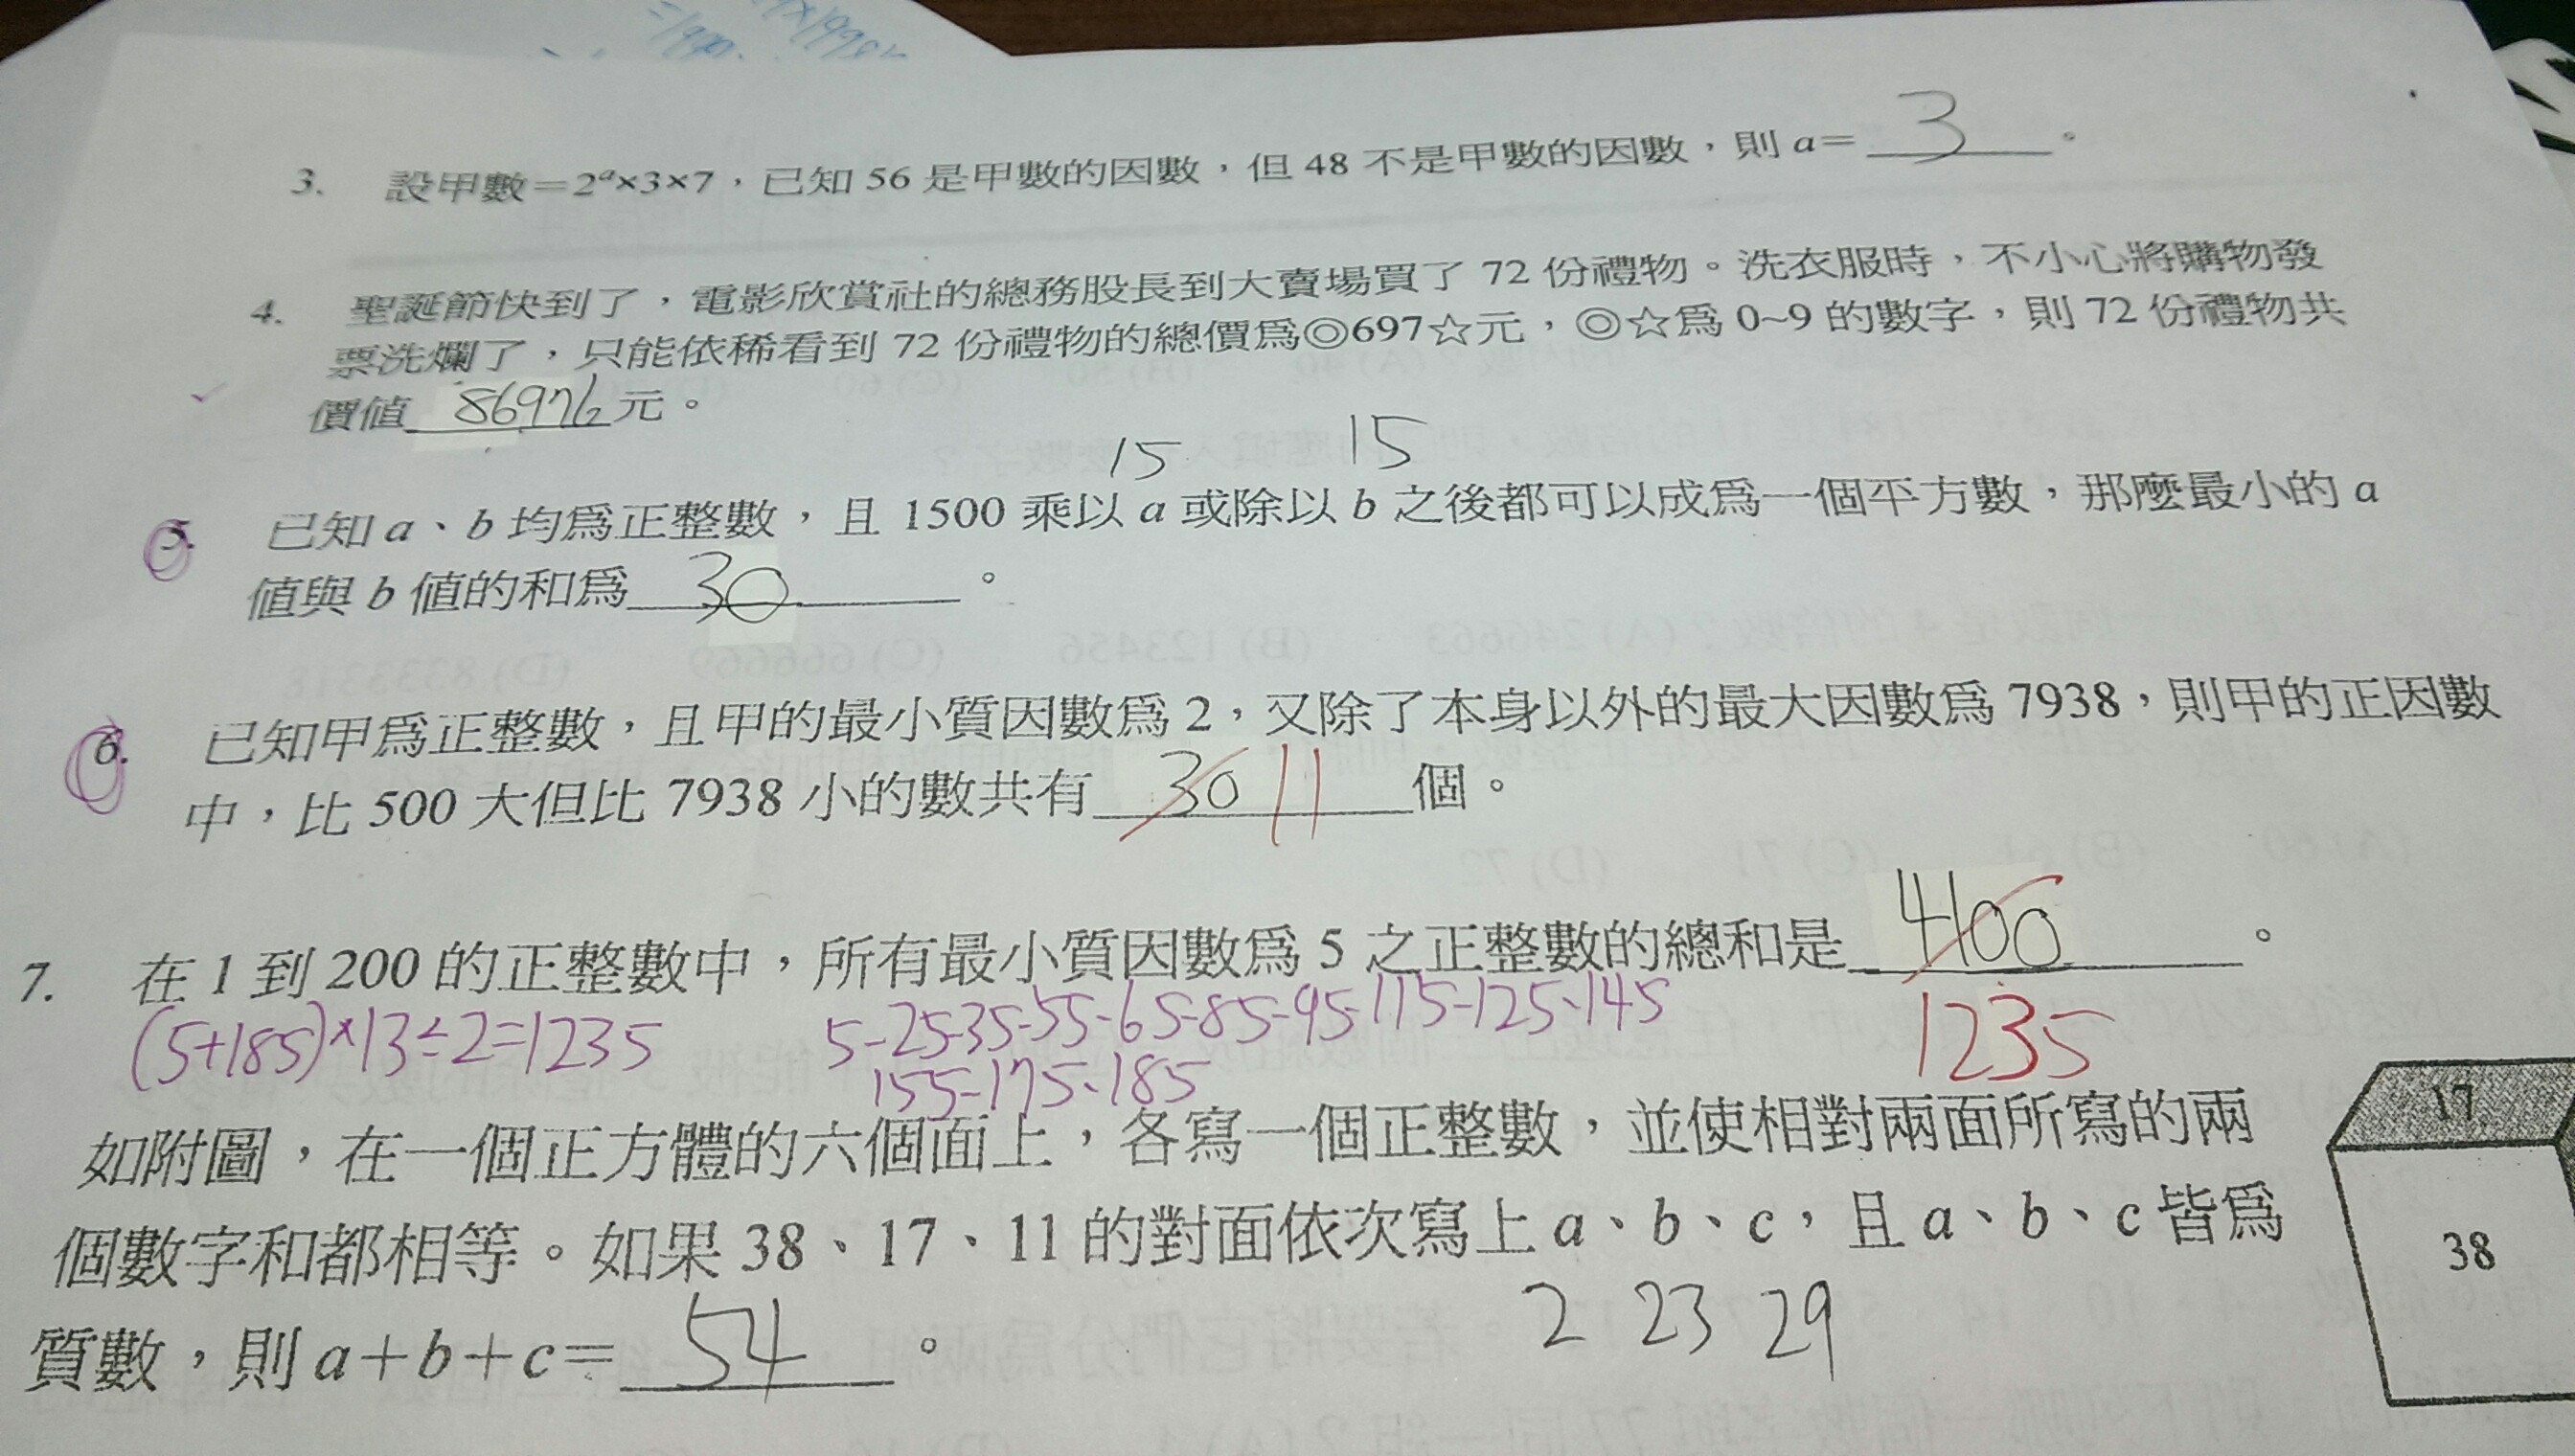 3. 設甲數=2ᵃ×3×7，已知 56 是甲數的因數，但 48 不是甲數的因數，則 a= 3 。
4. 聖誕節快到了，電影欣賞社的總務股長到大賣場買了 72 份禮物。洗衣服時，不小心將購物發
票洗爛了，只能依稀看到 72 份禮物的總價為◎697☆元，◎☆為 0~9 的數字，則 72 份禮物共
價值 86976 元。
15 15
5. 已知 a、b 均為正整數，且 1500 乘以 a 或除以 b 之後都可以成為一個平方數，那麼最小的 a
值與 b 值的和為 30 。
6. 已知甲為正整數，且甲的最小質因數為 2，又除了本身以外的最大因數為 7938，則甲的正因數
中，比 500 大但比 7938 小的數共有 30 11 個。
7. 在 1 到 200 的正整數中，所有最小質因數為 5 之正整數的總和是 4100 。
(5+185)×13÷2=1235 5-25-35-55-65-85-95-115-125-145 1235
155-175-185
如附圖，在一個正方體的六個面上，各寫一個正整數，並使相對兩面所寫的兩
個數字和都相等。如果 38、17、11 的對面依次寫上 a、b、c，且 a、b、c 皆為
2 23 29
質數，則 a+b+c= 54 。
17
38